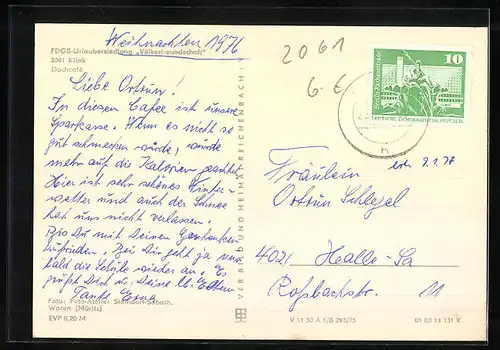 Weihnachten 1976
FDGB-Urlaubersiedlung „Völkerfreundschaft"
2061 Klink
Dachcafé
Liebe Ortrun!
In diesem Cafee ist unsere
Sparkasse. Wenn es nicht so
gut schmecken würde, würde
mehr auf die Kalorien geachtet.
Hier ist sehr schönes Winter-
wetter und auch der Schnee
hat uns nicht verlassen.
Bist Du mit Deinen Geschenken
zufrieden. Bei Dir geht ja nun
bald die Schule wieder an. Es
grüßt Dich u. Deine lb. Eltern
Tante Erna
Foto: Foto-Atelier Stansdorf-Sabath,
Waren (Müritz)
EVP 0,20 M
VERB UND HEIMAT REICHENBACH V
2061
6-€
10
DEUTSCHE DEMOKRATISCHE REPUBLIK
h
2.1.77
Fräulein
Ortrun Schlegel
4021 Halle-Sa
Roßbachstr. 11
V 11 50 A 1/B 293/75
01 03 14 131 K